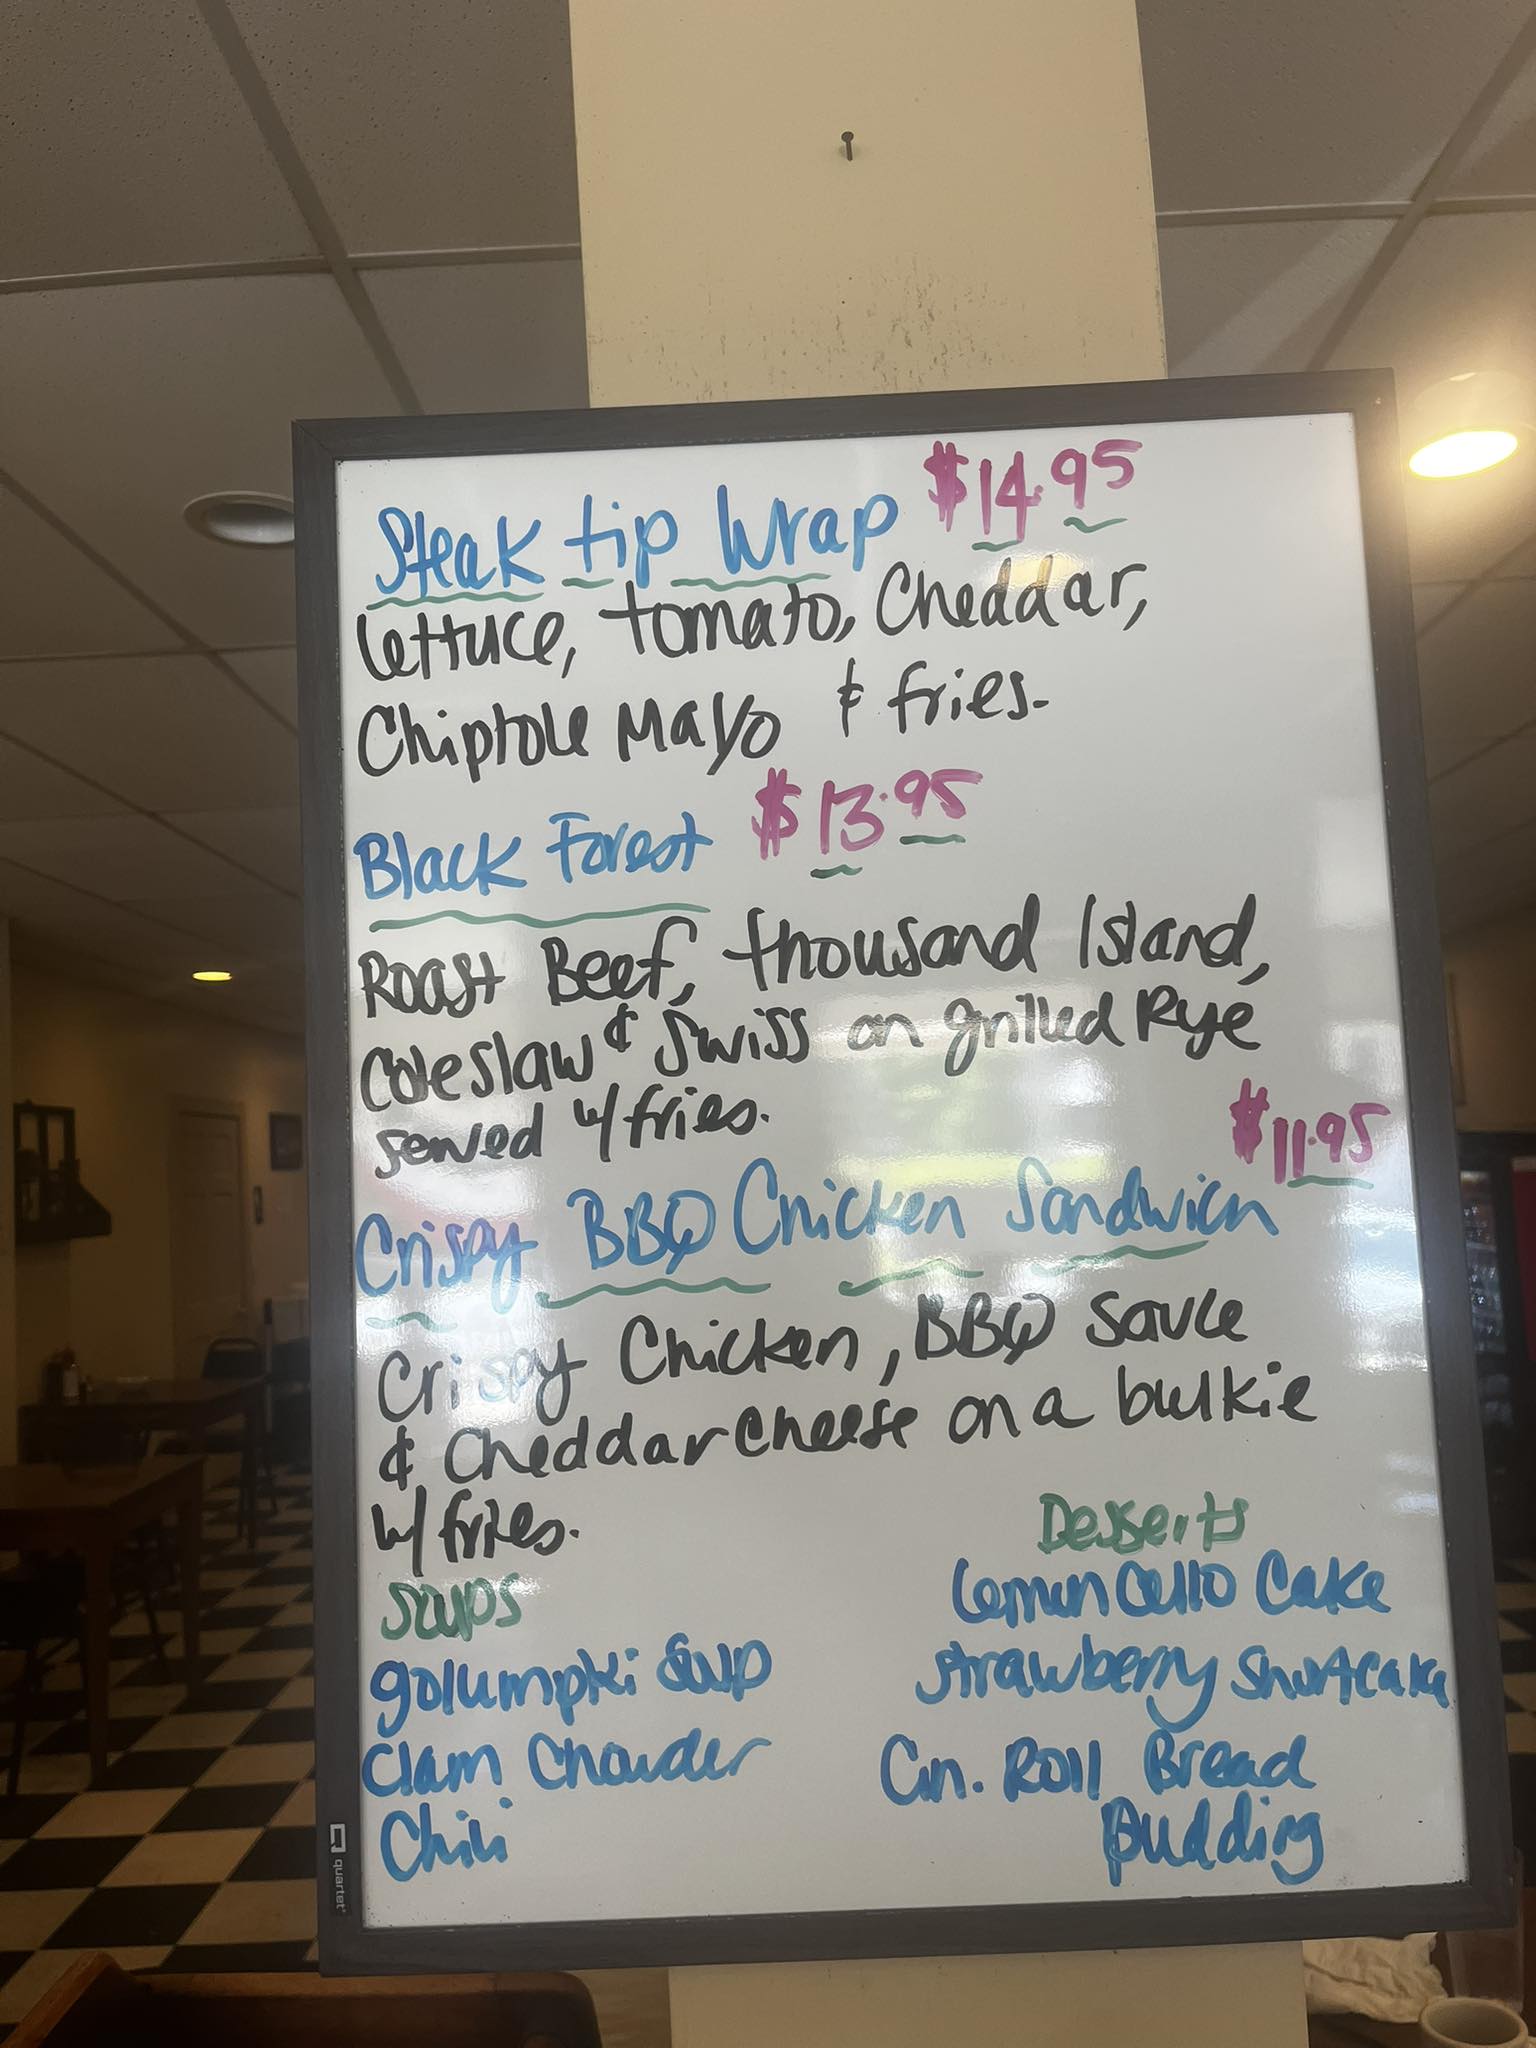 Steak tip Wrap $14.95
Lettuce, tomato, Cheddar,
Chiptole Mayo & fries.
Black Forest $13.95
Roast Beef, thousand Island,
Coleslaw & Swiss on grilled Rye
served w/ fries.
$11.95
Crispy BBQ Chicken Sandwich
Crispy Chicken, BBQ Sauce
& Cheddar cheese on a bulkie
w/ fries.
Soups
golumpki Soup
Clam Chowder
Chili
Desserts
Lemon Cello Cake
Strawberry Shortcake
Cin. Roll Bread
Pudding
quartet